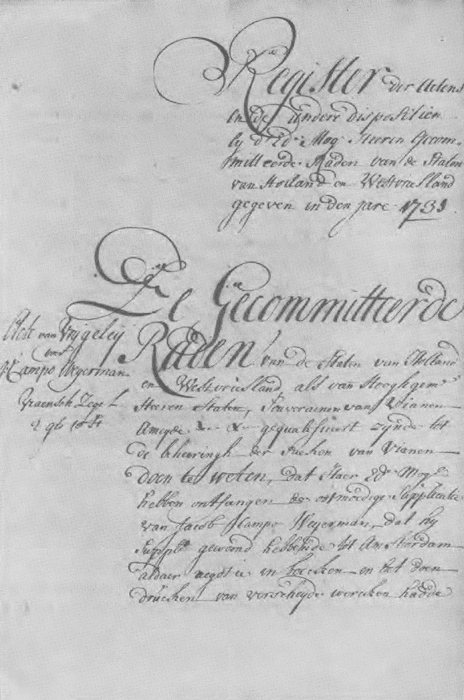 Register der Actens
ende andere dispositien
bij d'Ed. Mog. Heeren Gecom-
mitteerde Raden van de Staten
van Holland en Westvriesland
gegeven in den jare 1739
De Gecommitteerde
Raden van de Staten van Holland
en Westvriesland, als van Hooghgem.
Heeren Staten, Souverainen van Vianen
Ameyde &. &. gequalificeert zynde tot
de beheringh der saeken van Vianen
doen te weten, dat Haer Ed. Mog.
hebben ontfangen de ootmoedige supplicatie
van Jacob Campo Weyerman, dat hy
Suppl.t gewoond hebbende tot Amsterdam
aldaer negotie in boecken en het doen
drucken van verscheyde wercken hadde
Acte van Vrygeley
voor
J: Campo Weyerman
Zegel